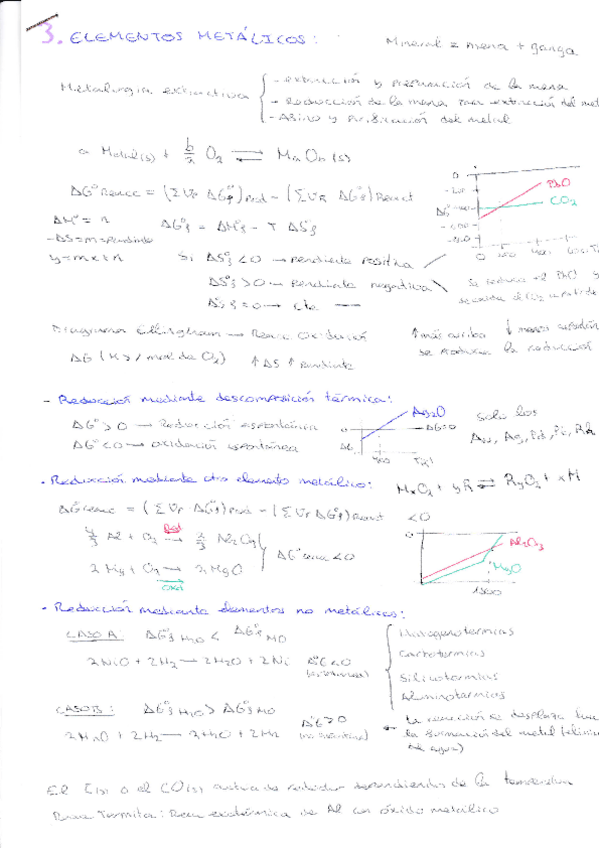 3. ELEMENTOS METÁLICOS:
Mineral = mena + ganga
Metalurgia extractiva
- extracción y preparación de la mena
- Reducción de la mena para extracción del met
- Afino y purificación del metal
a Metal(s) + b/2 O2 ⇌ MaOb(s)
ΔG° Reacc = (Σ νp ΔG°f)Prod - (Σ νR ΔG°f)React
ΔH° = n
ΔG°f = ΔH°f - T ΔS°f
-ΔS = m = pendiente
y = mx + n
Si ΔS°f < 0 → pendiente positiva
ΔS°f > 0 → pendiente negativa
ΔS°f = 0 → cte
PbO
CO2
Diagrama Ellingham → Reacc Oxidación
ΔG (KJ/mol de O2) ↑ΔS ↑pendiente
↑ más arriba ↓ menos
se produce la reducción
- Reducción mediante descomposición térmica:
ΔG° > 0 → Reducción espontánea
ΔG° < 0 → oxidación espontánea
Ag2O
ΔG=0
T(K)
solo los
Au, Ag, Pd, Pt, Rh
- Reducción mediante otro elemento metálico:
MxO2 + yR ⇌ RyO2 + xM
ΔG° reacc = (Σ νp ΔG°f)Prod - (Σ νr ΔG°f)React < 0
4/3 Al + O2 → 2/3 Al2O3
2Mg + O2 → 2MgO
ΔG° reacc < 0
Al2O3
MgO
1500
- Reducción mediante elementos no metálicos:
CASO A: ΔG°f H2O < ΔG°f MO
2NiO + 2H2 → 2H2O + 2Ni
Halogenotermias
Carbotermias
Silicotermias
Aluminotermias
CASO B: ΔG°f H2O > ΔG°f MO
La reacción se desplaza hacia
la formación del metal
del agua)
El C(s) o el CO(s) actua de reductor dependiendo de la temperatura
Reac Termita: Reac exotérmica de Al con óxido metálico